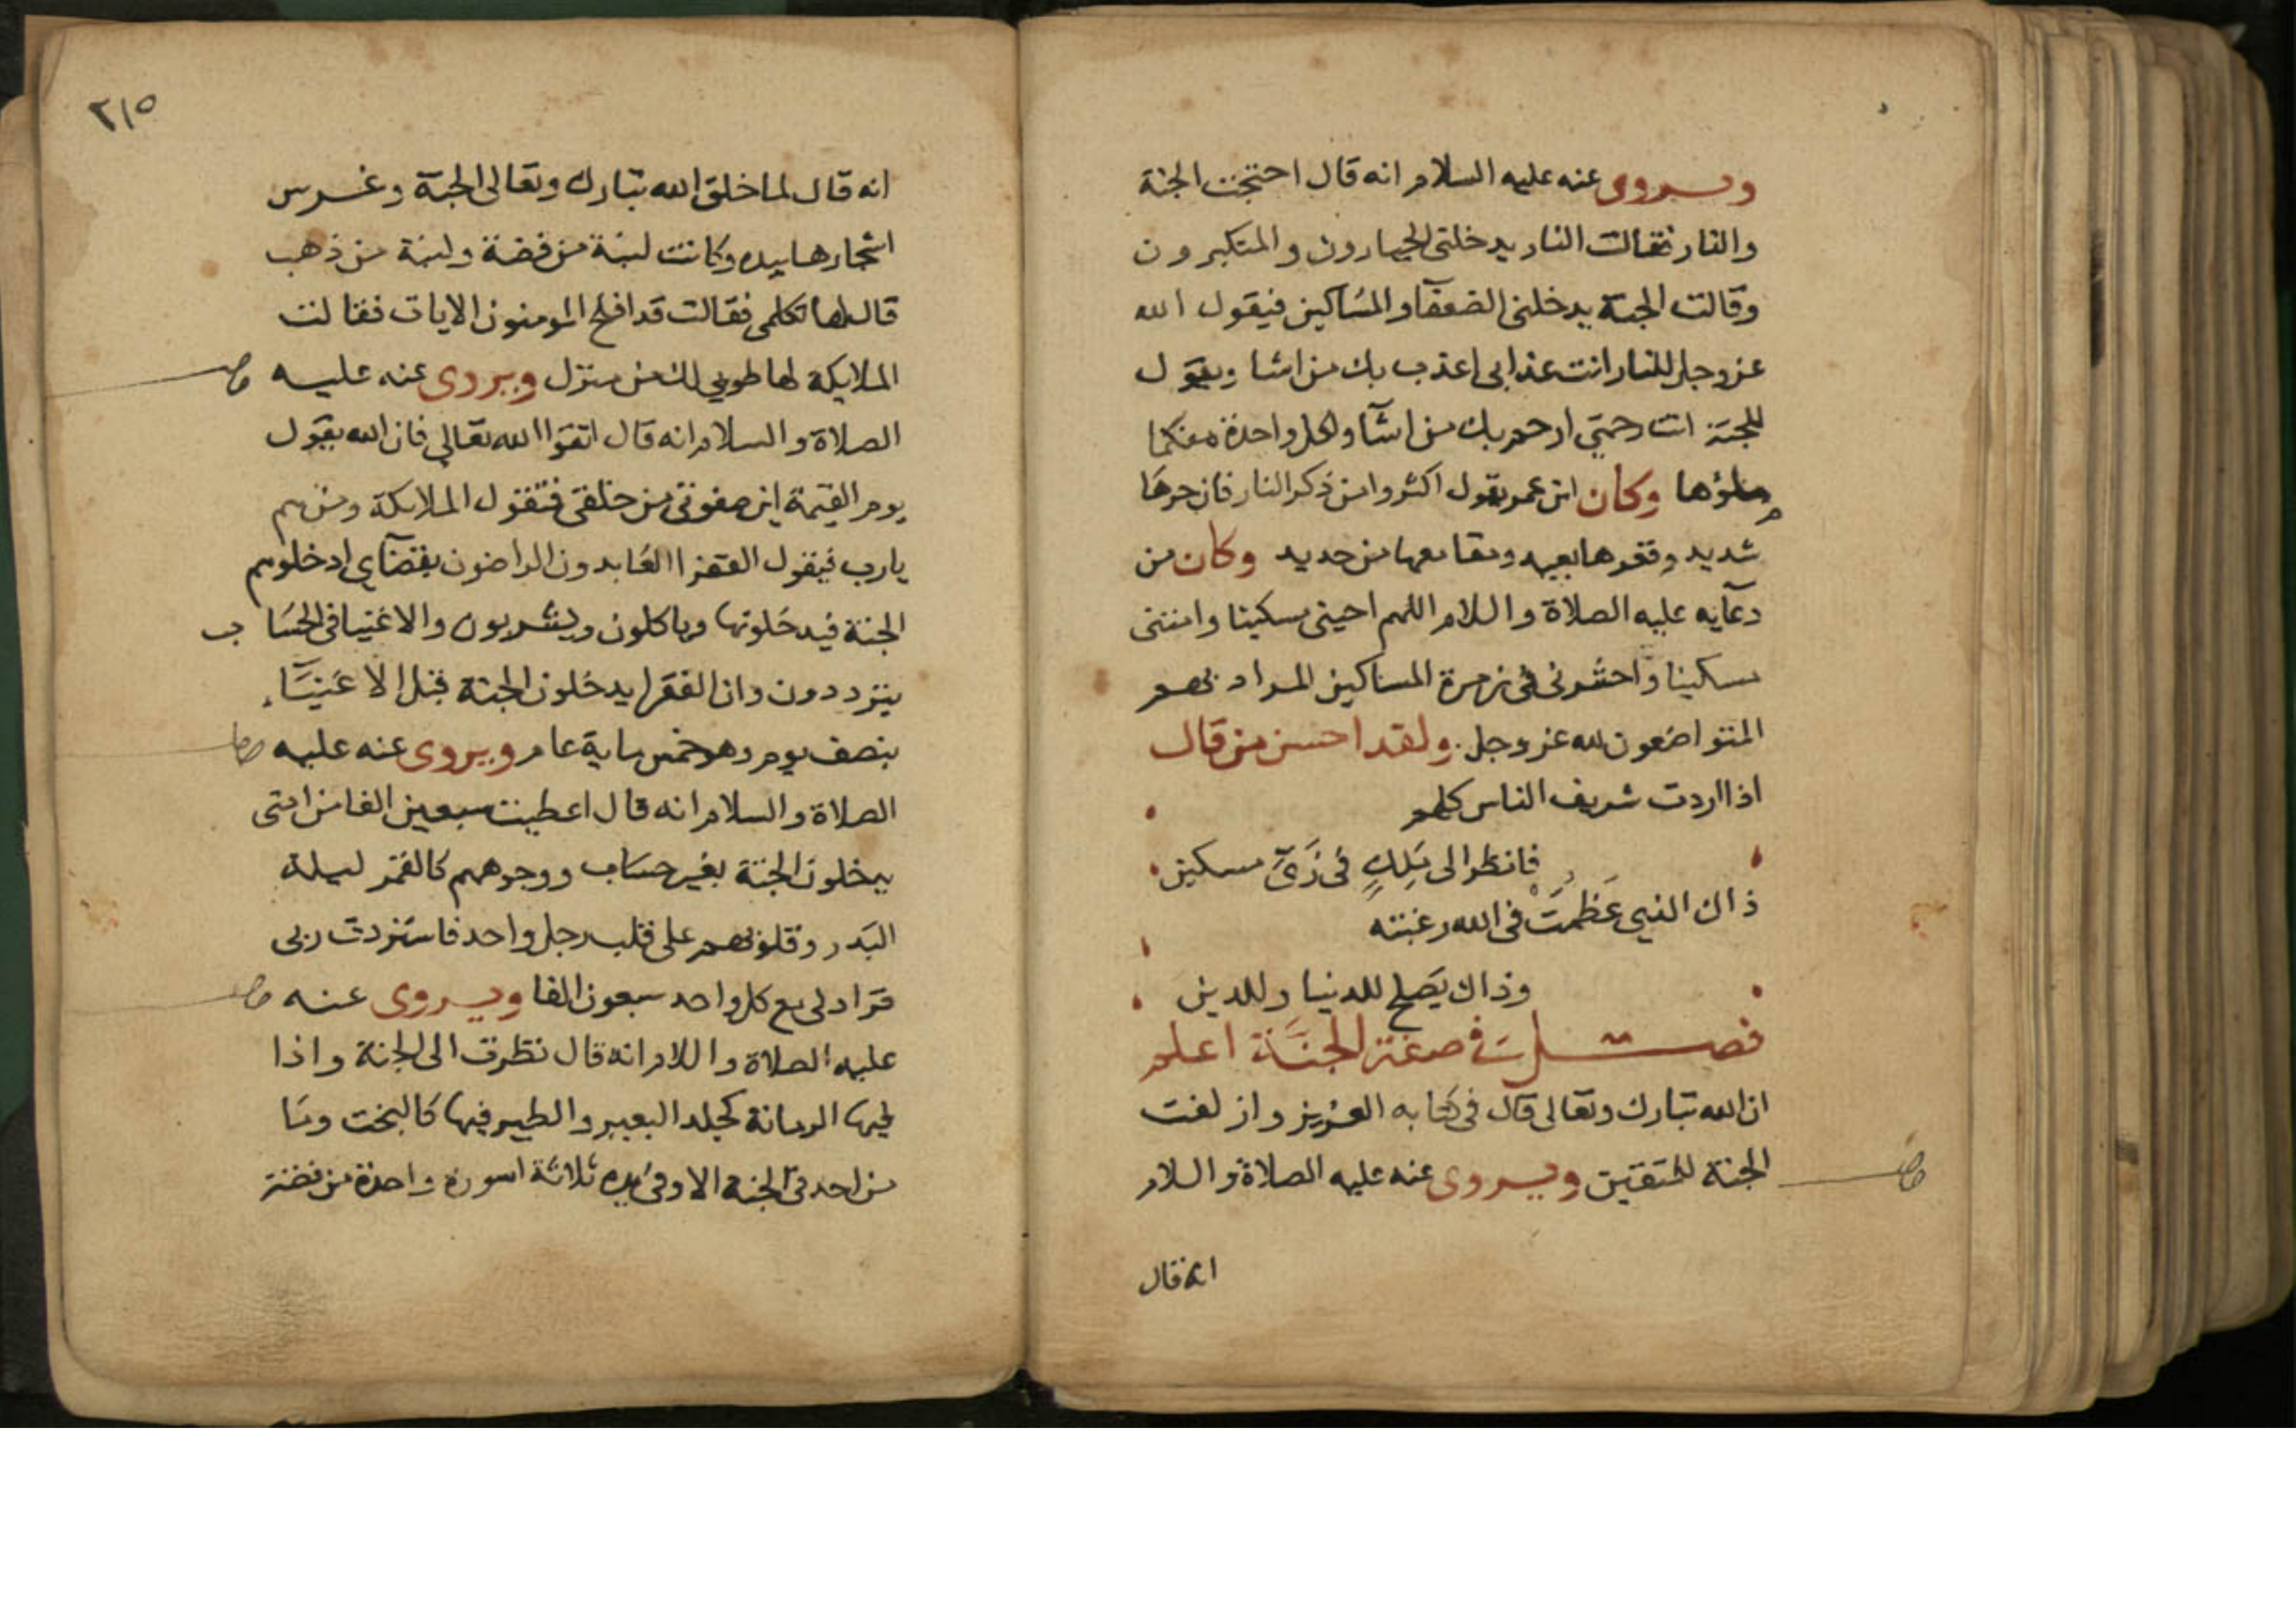 ويروى عنه عليه السلام انه قال احتجت الجنة
والنار فقالت النار يدخلني الجبارون والمتكبرون
وقالت الجنة يدخلني الضعفآ والمساكين فيقول الله
عز وجل للنار انت عذابي اعذب بك من اشا ويقول
للجنة انت رحمتي ارحم بك من اشآ ولكل واحدة منكما
ملؤها وكان ابن عمر يقول اكثروا من ذكر النار فان حرها
شديد وقعرها بعيد ومقامعها من حديد وكان من
دعآيه عليه الصلاة والسلام اللهم احيني مسكينا وامتني
مسكينا واحشرني في زمرة المساكين المراد بهم
المتواضعون لله عز وجل ولقد احسن من قال
اذا اردت شريف الناس كلهم
فانظر الى ملك في زي مسكين
ذاك الذي عظمت في الله رغبته
وذاك يصلح للدنيا وللدين
فصل في صفة الجنة اعلم
ان الله تبارك وتعالى قال في كتابه العزيز وازلفت
الجنة للمتقين ويروى عنه عليه الصلاة والسلام
انه قال
٢١٥
انه قال لما خلق الله تبارك وتعالى الجنة وغرس
اشجارها بيده وكانت لبنة من فضة ولبنة من ذهب
قال لها تكلمي فقالت قد افلح المومنون الايات فقالت
الملايكة لها طوبي لك من منزل ويروى عنه عليه
الصلاة والسلام انه قال اتقوا الله تعالي فان الله يقول
يوم القيمة اين صفوتي من خلقي فتقول الملايكة ومن هم
يارب فيقول الفقرا العابدون الراضون بقضآي ادخلوهم
الجنة فيدخلونها وياكلون ويشربون والاغنيا في الحساب
يترددون وان الفقرا يدخلون الجنة قبل الاغنيآء
بنصف يوم وهو خمس ماية عام ويروى عنه عليه
الصلاة والسلام انه قال اعطيت سبعين الفا من امتي
يدخلون الجنة بغير حساب ووجوههم كالقمر ليلة
البدر وقلوبهم على قلب رجل واحد فاستزدت ربي
فزادلي مع كل واحد سبعون الفا ويروى عنه
عليه الصلاة والسلام انه قال نظرت الى الجنة واذا
فيها الرمانة كجلد البعير والطير فيها كالبخت وما
من احد في الجنة الا وفي يده ثلاثة اسورة واحدة من فضة